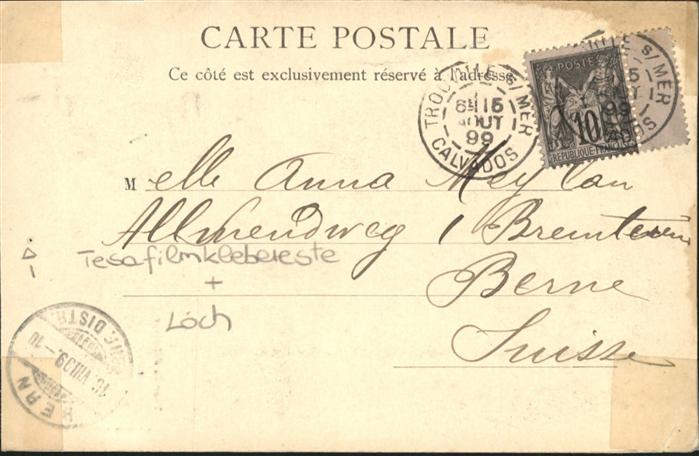 CARTE POSTALE
Ce côté est exclusivement réservé à l'adresse.
TROUVILLE S/MER
8E 15
AOUT
99
CALVADOS
POSTES
10
REPUBLIQUE FRANÇAISE
S/MER
15
99
Melle Anna Meylan
Allmendweg 1
Berne
Suisse
Tesafilmklebereste
+
Loch
BERN
DISTR.
VIII.99.–10